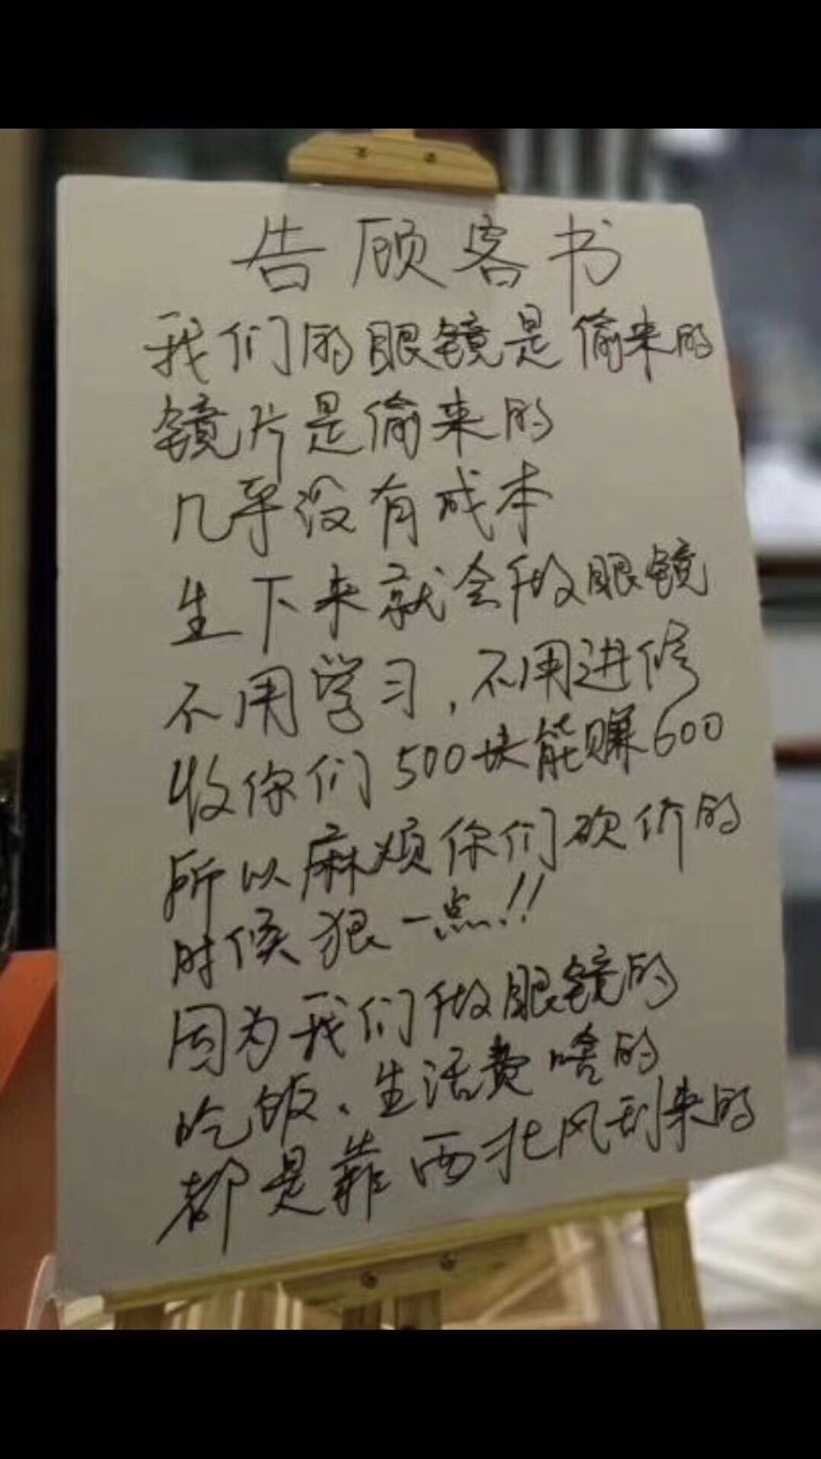 告顾客书
我们的眼镜是偷来的
镜片是偷来的
几乎没有成本
生下来就会做眼镜
不用学习，不用进修
收你们500块能赚600
所以麻烦你们砍价的
时候狠一点!!
因为我们做眼镜的
吃饭、生活费啥的
都是靠西北风刮来的